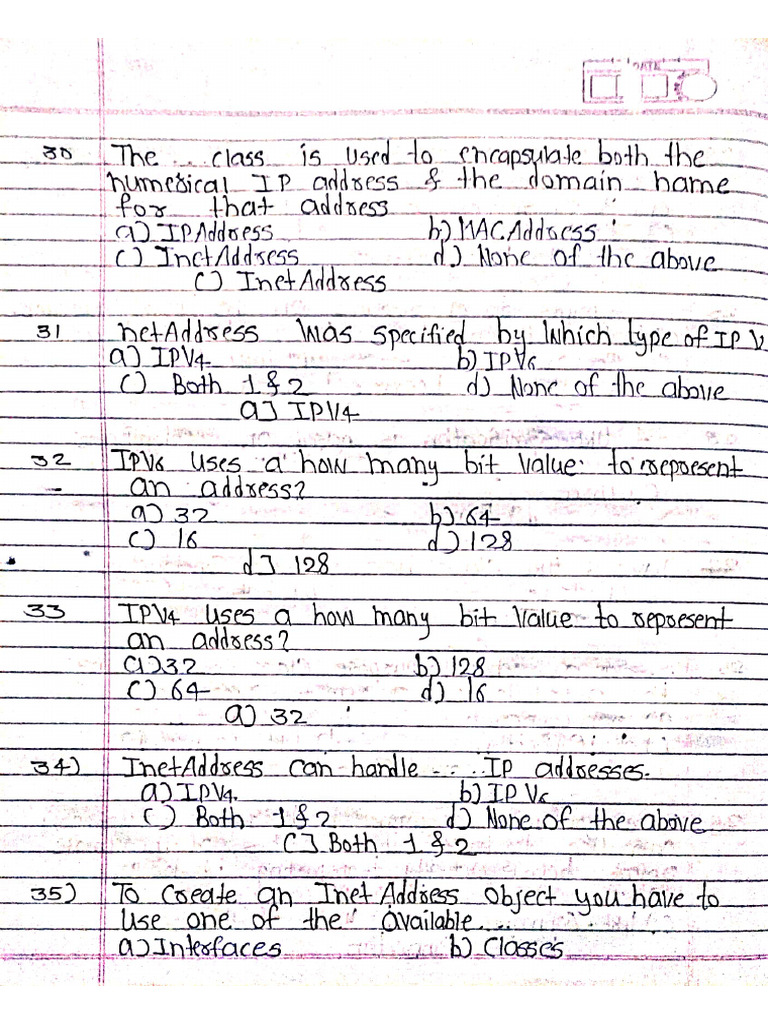 DATE
30 The ... class is used to encapsulate both the
numerical IP address & the domain name
for that address
a) IPAddress b) MACAddress
c) InetAddress d) None of the above
c) InetAddress
31 netAddress was specified by which type of IP V
a) IPV4 b) IPV6
c) Both 1 & 2 d) None of the above
a] IPV4
32 IPV6 uses a how many bit value to represent
an address?
a) 32 b) 64
c) 16 d) 128
d] 128
33 IPV4 uses a how many bit value to represent
an address?
a) 32 b) 128
c) 64 d) 16
a) 32
34) InetAddress can handle ...... IP addresses.
a) IPV4. b) IPV6
c) Both 1 & 2 d) None of the above
c] Both 1 & 2
35) To create an InetAddress object you have to
use one of the available ....
a) Interfaces b) Classes